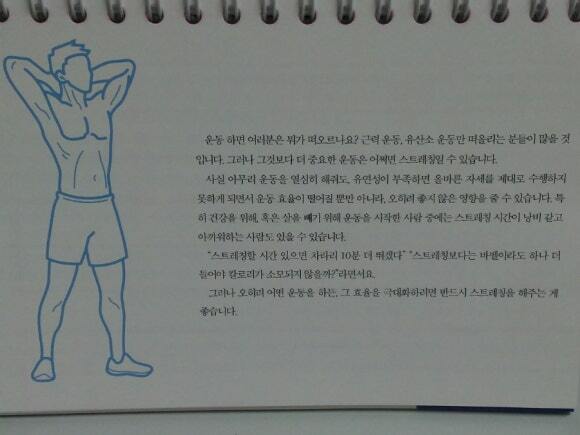 운동 하면 여러분은 뭐가 떠오르나요? 근력 운동, 유산소 운동만 떠올리는 분들이 많을 것
입니다. 그러나 그것보다 더 중요한 운동은 어쩌면 스트레칭일 수 있습니다.
사실 아무리 운동을 열심히 해줘도, 유연성이 부족하면 올바른 자세를 제대로 수행하지
못하게 되면서 운동 효율이 떨어질 뿐만 아니라, 오히려 좋지 않은 영향을 줄 수 있습니다. 특
히 건강을 위해, 혹은 살을 빼기 위해 운동을 시작한 사람 중에는 스트레칭 시간이 낭비 같고
아까워하는 사람도 있을 수 있습니다.
“스트레칭할 시간 있으면 차라리 10분 더 뛰겠다” “스트레칭보다는 바벨이라도 하나 더
들어야 칼로리가 소모되지 않을까?”라면서요.
그러나 오히려 어떤 운동을 하든, 그 효율을 극대화하려면 반드시 스트레칭을 해주는 게
좋습니다.